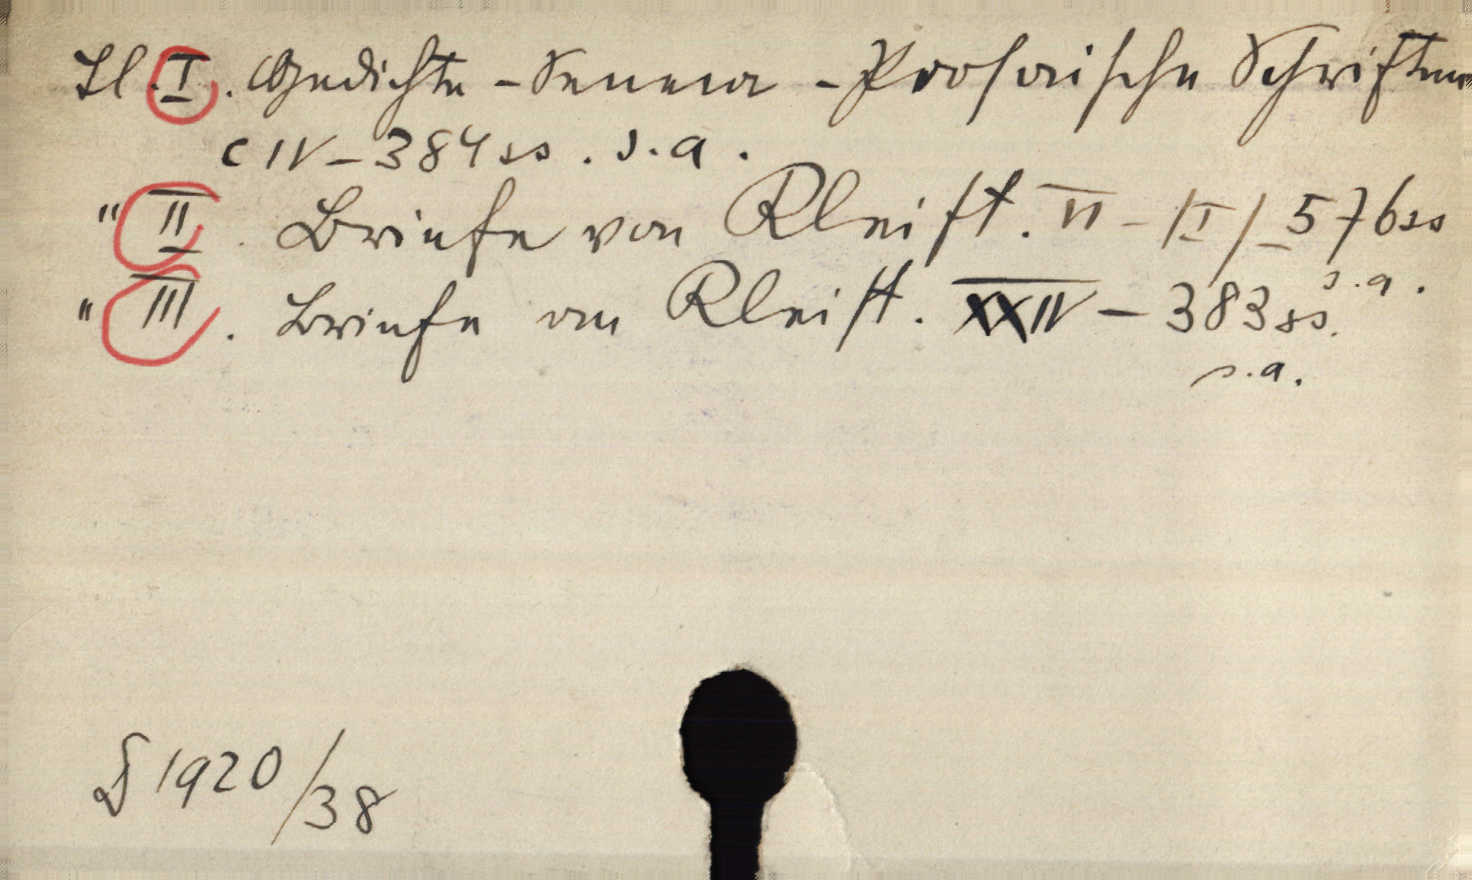 Tl. I. Gedichte - Seneca - Prosaische Schriften
CIV - 384 ss. s.a.
" II. Briefe von Kleist. VI - |I| - 576 ss
s.a.
" III. Briefe an Kleist. XXIV - 383 ss.
s.a.
§ 1920/38